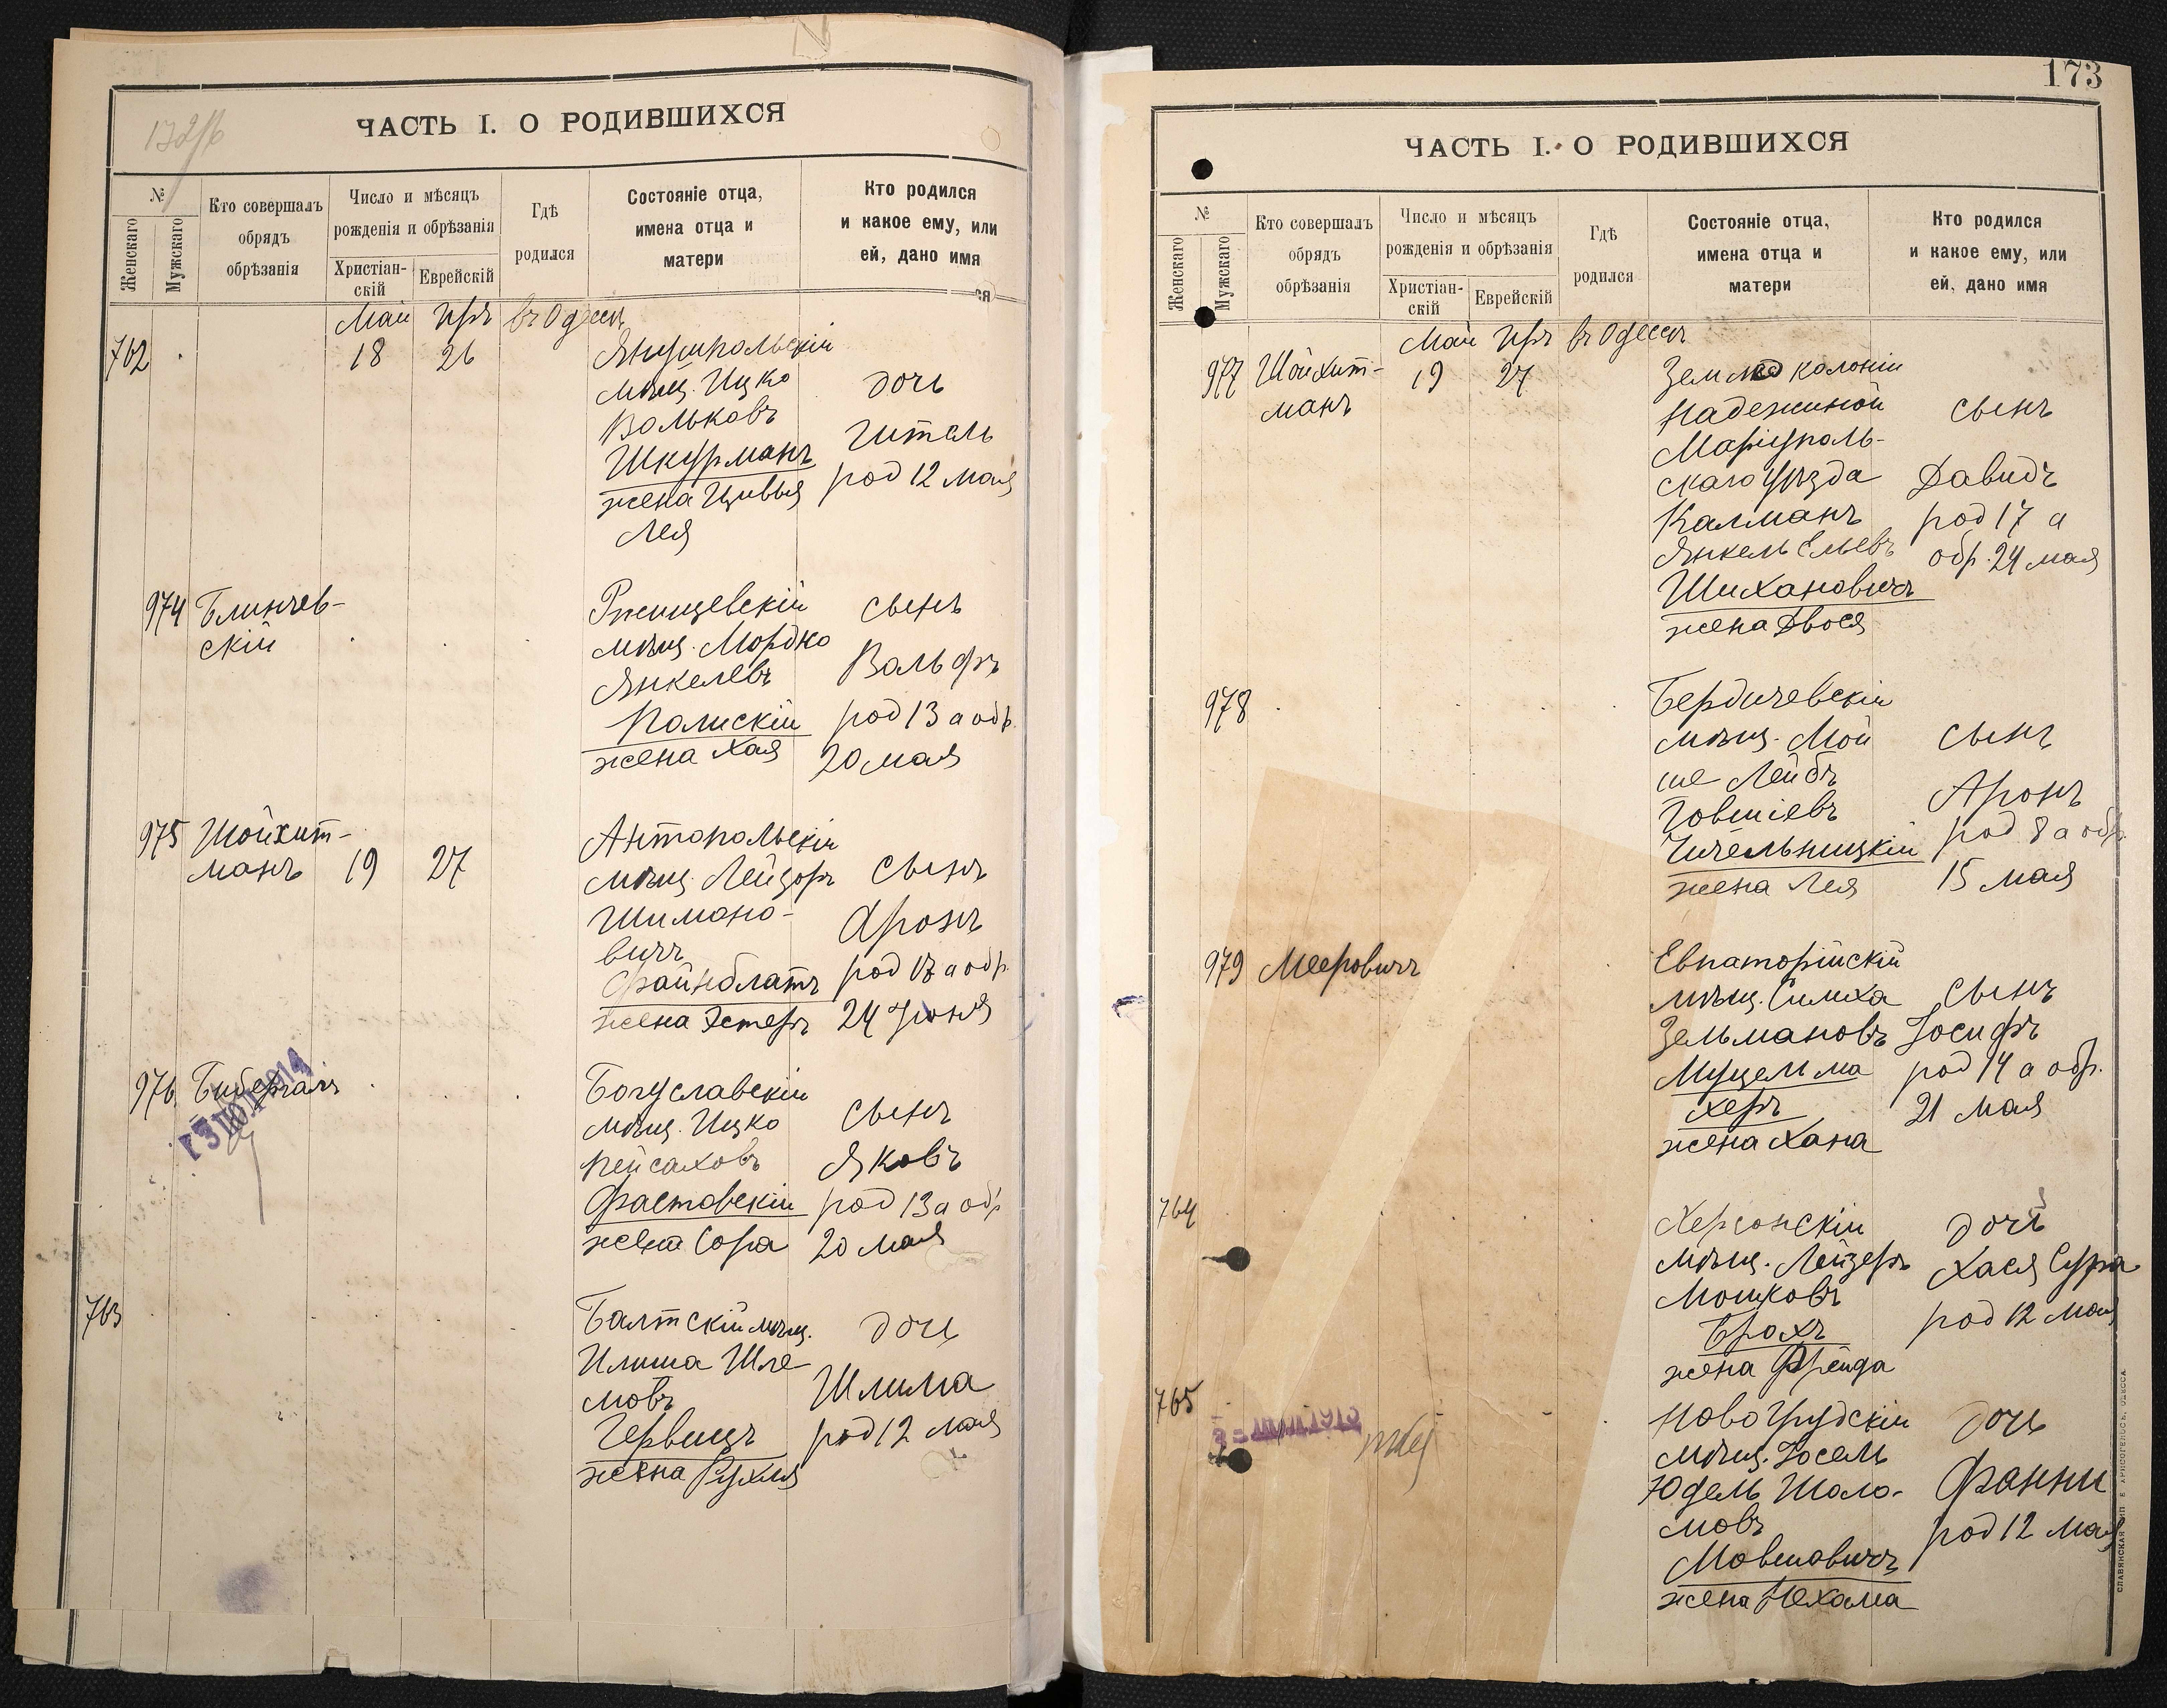 172/б
ЧАСТЬ I. О РОДИВШИХСЯ
№
Женскаго
Мужскаго
Кто совершалъ
обрядъ
обрѣзанія
Число и мѣсяцъ
рожденія и обрѣзанія
Христіан-
скій
Еврейскій
Гдѣ
родился
Состояніе отца,
имена отца и
матери
Кто родился
и какое ему, или
ей, дано имя
Май Іяръ въ Одессѣ
762 18 26
Янушпольскій
мѣщ. Ицко
Вольковъ
Шкурманъ
жена Цивья
Лея
дочь
Гитель
род 12 мая
974 Блинчев-
скій
Ржищевскій
мѣщ. Мордко
Янкелевъ
Полискій
жена Хая
сынъ
Вольфъ
род 13 а обр.
20 мая
975 Шойхит-
манъ 19 27
Антопольскій
мѣщ. Лейзоръ
Шимано-
вичъ
Файнблатъ
жена Эстеръ
сынъ
Аронъ
род 18 а обр.
24 Іюня
976 Бибергалъ
Богуславскій
мѣщ. Ицко
Пейсаховъ
Фастовскій
жена Сора
сынъ
Яковъ
род 13 а обр
20 мая
763
Балтскій мѣщ.
Илиша Шле-
мовъ
Гервицъ
жена Рухля
дочь
Шлима
род 12 мая
173
ЧАСТЬ I. О РОДИВШИХСЯ
№
Женскаго
Мужскаго
Кто совершалъ
обрядъ
обрѣзанія
Число и мѣсяцъ
рожденія и обрѣзанія
Христіан-
скій
Еврейскій
Гдѣ
родился
Состояніе отца,
имена отца и
матери
Кто родился
и какое ему, или
ей, дано имя
Май Іяръ въ Одессѣ
977 Шойхит-
манъ 19 27
Землед колоніи
Надежиной
Маріуполь-
скаго уѣзда
Калманъ
Янкель Ельевъ
Шихановичъ
жена Двося
сынъ
Давидъ
род 17 а
обр. 24 мая
978
Бердичевскій
мѣщ. Мой
ше Лейбъ
Говшіевъ
Чичельницкій
жена Лея
сынъ
Аронъ
род 8 а обр.
15 мая
979 Мееровичъ
Евпаторійскій
мѣщ. Симха
Зельмановъ
Муцелма
херъ
жена Хана
сынъ
Іосифъ
род 14 а обр.
21 мая
764
Херсонскій
мѣщ. Лейзеръ
Мошковъ
Брохъ
жена Фрейда
дочь
Хася Сура
род 12 мая
765
Новогрудскій
мѣщ. Іосель
Юдель Шоло-
мовъ
Мовшовичъ
жена Нехама
дочь
Фанни
род 12 мая